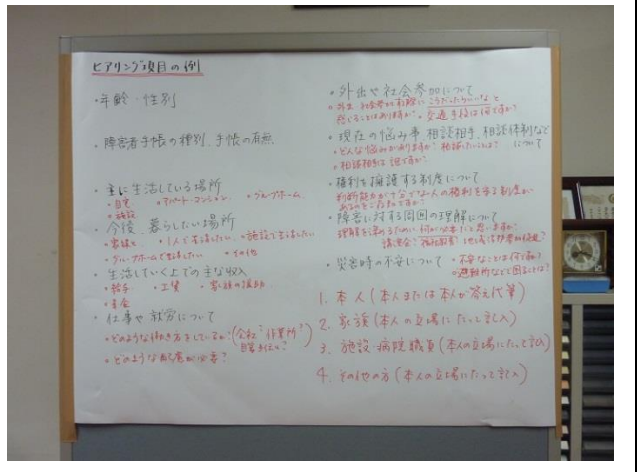 ヒアリング項目の例
・年齢・性別
・障害者手帳の種別、手帳の有無
・主に生活している場所
・自宅 ・アパート・マンション ・グループホーム
・施設
・今後、暮らしたい場所
・家族と ・1人で生活したい ・施設で生活したい
・グループホームで生活したい ・その他
・生活していく上での主な収入
・給与 ・工賃 ・家族の援助
・年金
・仕事や就労について
・どのような働き方をしているか?(会社? 作業所?
自営手伝い?)
・どのような配慮が必要?
・外出や社会参加について
・外出、社会参加の際に こうだったらいいな と
感じることはありますか? ・交通手段は何ですか?
・現在の悩み事、相談相手、相談体制など
について
・どんな悩みがありますか? 相談したいことは?
・相談相手は誰ですか?
・権利を擁護する制度について
判断能力が十分でない人の権利を守る制度が
あるのをご存知ですか?
・障害に対する周囲の理解について
理解を深めるために何が必要だと思いますか?
講演会? 福祉教育?
・災害時の不安について ・不安なことは何ですか?
・避難所などで困ることは?
1. 本人(本人または本人が答え代筆)
2. 家族(本人の立場にたって記入)
3. 施設・病院職員(本人の立場にたって記入)
4. その他の方(本人の立場にたって記入)